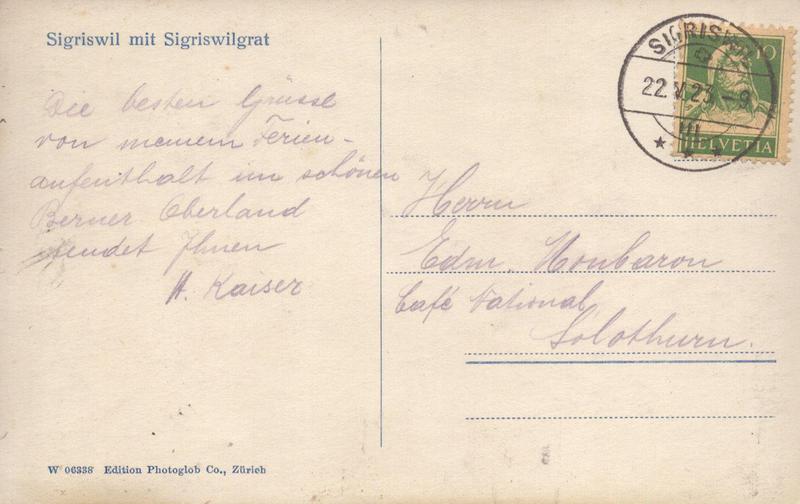 Sigriswil mit Sigriswilgrat
Die besten Grüsse
von meinem Ferien-
aufenthalt im schönen
Berner Oberland
sendet Ihnen
H. Kaiser
SIGRISWIL
22.V.23.-9
10
HELVETIA
Herrn
Edm. Monbaron
Café National
Solothurn.
W 06338 Edition Photoglob Co., Zürich